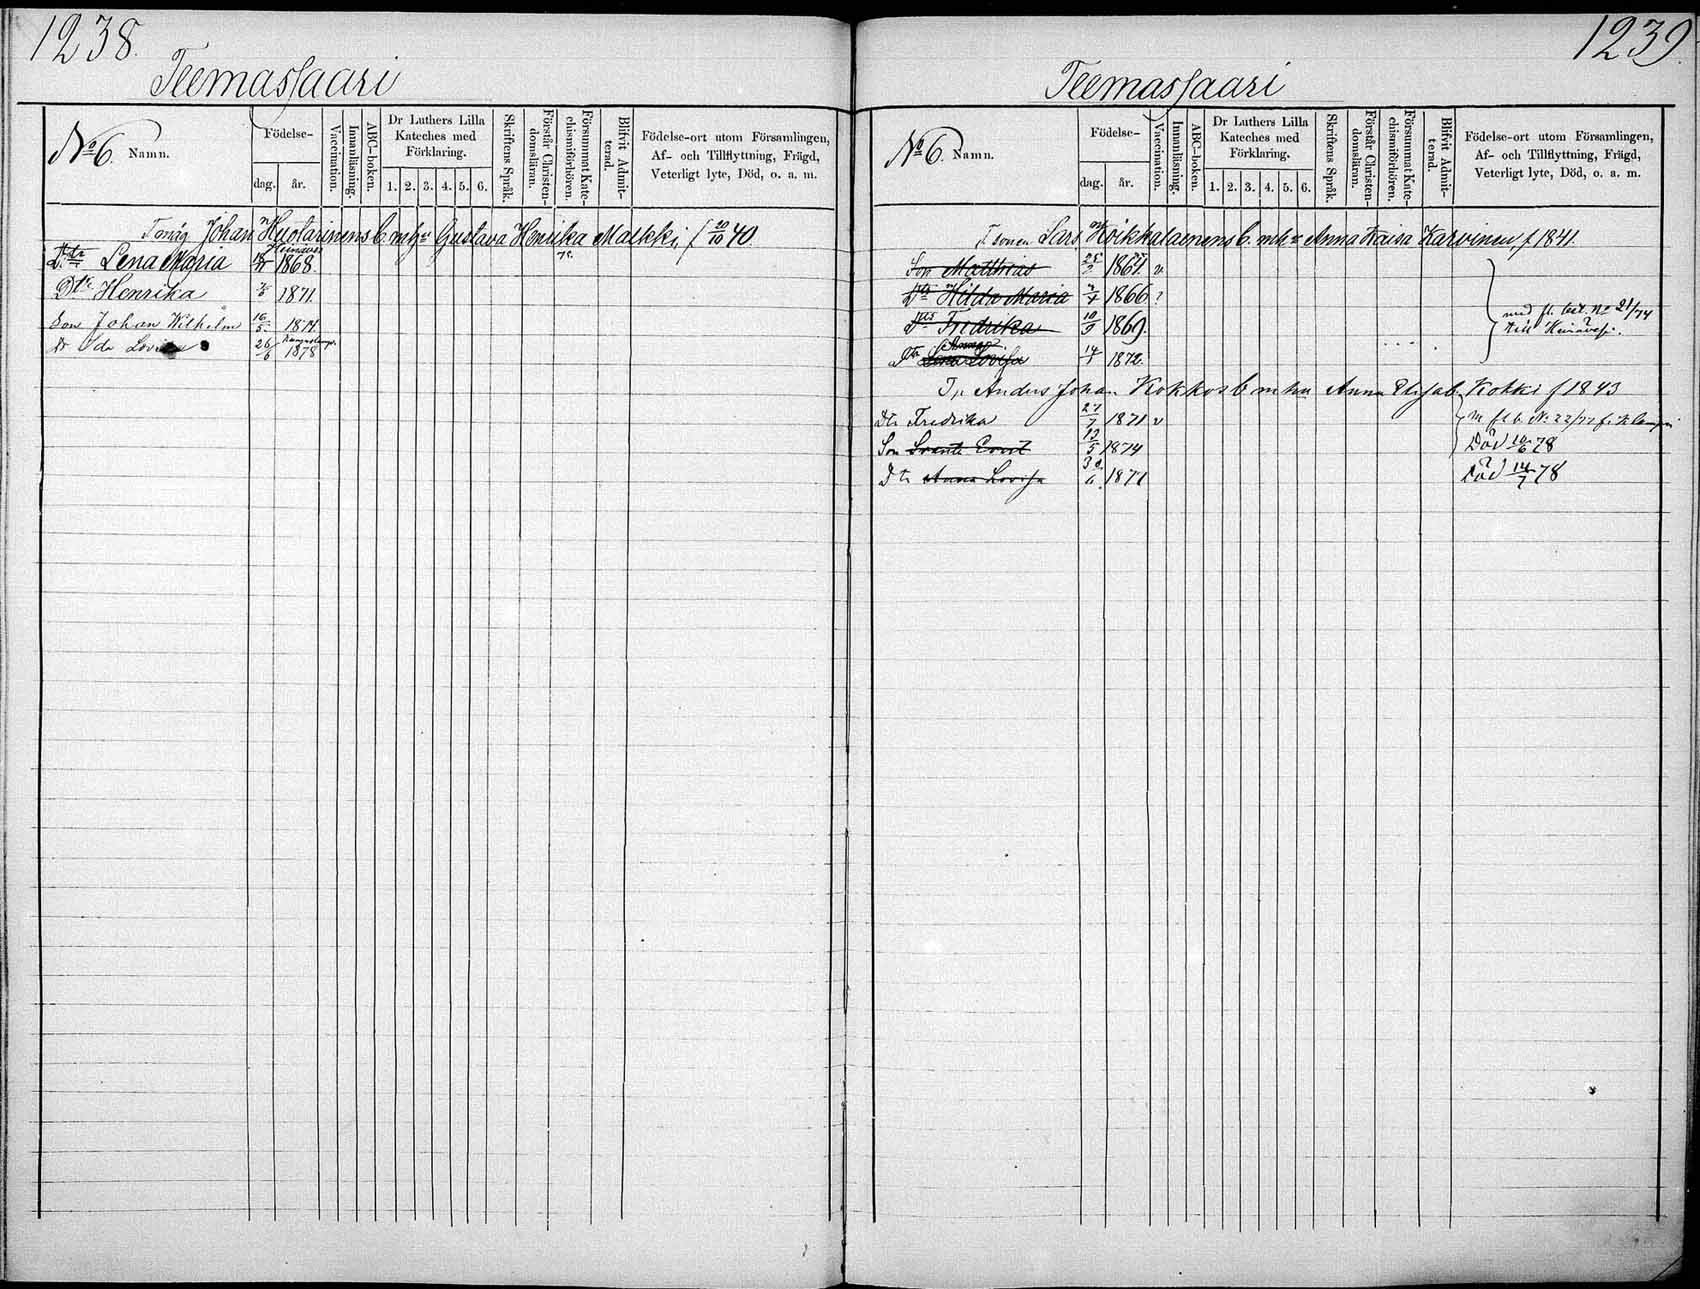 1238.
Teemassaari
No 6. Namn.
Födelse-
dag. år.
Vaccination.
Innanläsning.
ABC-boken.
Dr Luthers Lilla
Kateches med
Förklaring.
1. 2. 3. 4. 5. 6.
Skriftens Språk.
Förstår Christen-
domsläran.
Försummat Kate-
chismiförhören.
Blifvit Admit-
terad.
Födelse-ort utom Församlingen,
Af- och Tillflyttning, Frägd,
Veterligt lyte, Död, o. a. m.
Johan Huotarinens b. mhu Gustava Henrika Malkki f 20/10 40
Dtr Lena Maria 1868
Dtr Henrika 1871
Son Johan Wilhelm 16/5 1874
Dr Ida 26/6 1878
1239.
Teemassaari
No 6. Namn.
Födelse-
dag. år.
Vaccination.
Innanläsning.
ABC-boken.
Dr Luthers Lilla
Kateches med
Förklaring.
1. 2. 3. 4. 5. 6.
Skriftens Språk.
Förstår Christen-
domsläran.
Försummat Kate-
chismiförhören.
Blifvit Admit-
terad.
Födelse-ort utom Församlingen,
Af- och Tillflyttning, Frägd,
Veterligt lyte, Död, o. a. m.
Lars Koikkalaenens b. mhu Anna Kaisa Karvinen f 1841.
Son Matthias 1864 v
Dtr Hilda Maria 1866
Dtr Fredrika 10/9 1869.
Dtr Lovisa 14/7 1872.
med fl. bet. No 21/74
till Heinäves.
Anders Johan Kokkos b mhu Anna Elisab. Kokki f 1843
Dtr Fredrika 27/7 1871 v
Son Svante Ernst 12/5 1874 Död 10/6 78
Dtr Anna Lovisa 1877 Död 14/7 78